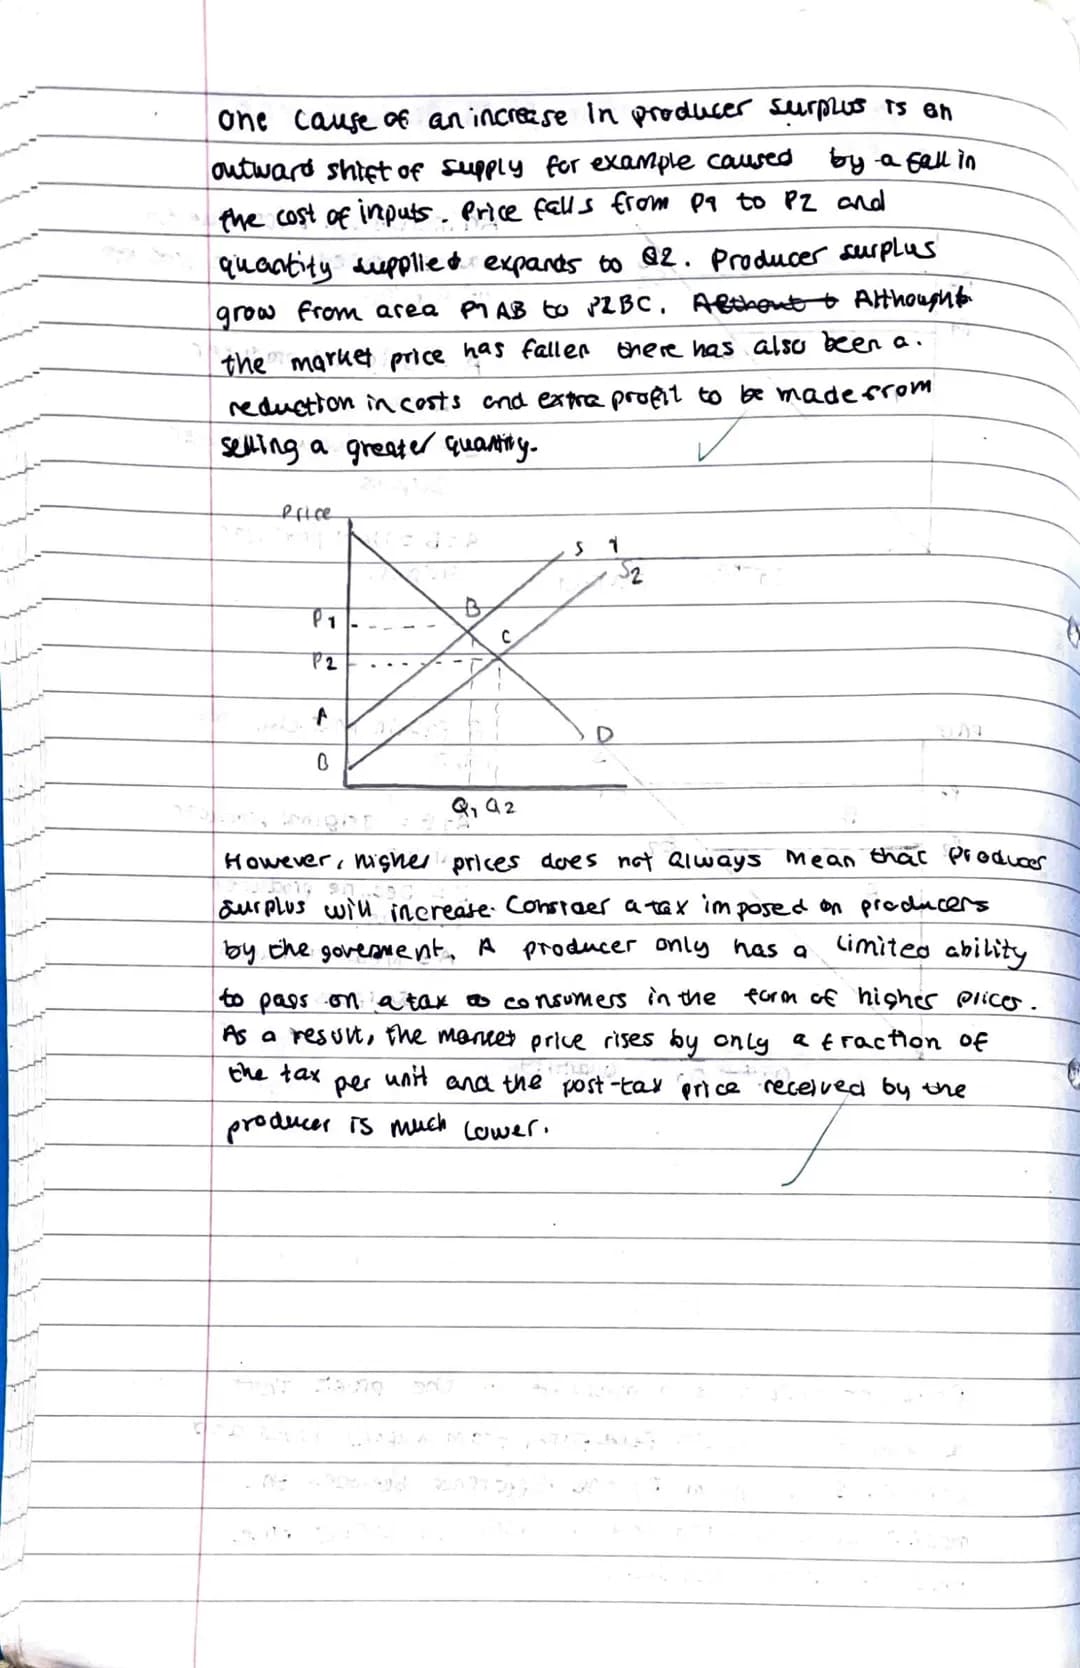 One cause of an increase in producer surplus is an
outward shift of supply for example caused by a fall in
the cost of inputs. Price falls from P1 to P2 and
quantity supplied expands to Q2. Producer surplus
grow from area P1 AB to P2BC. Although
the market price has fallen there has also been a.
reduction in costs and extra profit to be made from
selling a greater quantity.
Price
S 1
S2
B
P1
C
P2
A
D
B
Q1 Q2
However, higher prices does not always mean that producer
surplus will increase. Consider a tax imposed on producers
by the goverment. A producer only has a limited ability
to pass on a tax to consumers in the form of higher prices.
As a result, the market price rises by only a fraction of
the tax per unit and the post-tax price received by the
producer is much lower.